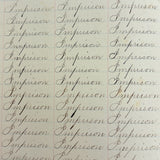 Imprison Imprison Imprison
Imprison Imprison Imprison
Imprison Imprison Imprison
Imprison Imprison Imprison
Imprison Imprison Imprison
Imprison Imprison Imprison
Imprison Imprison Imprison
Imprison Imprison Imprison
Imprison Imprison Imprison
Imprison Imprison Imprison
Imprison Imprison Imprison
Imprison Imprison Imprison